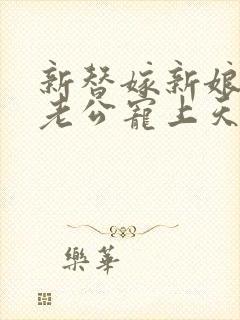 新替嫁新娘
老公寵上天
樂華